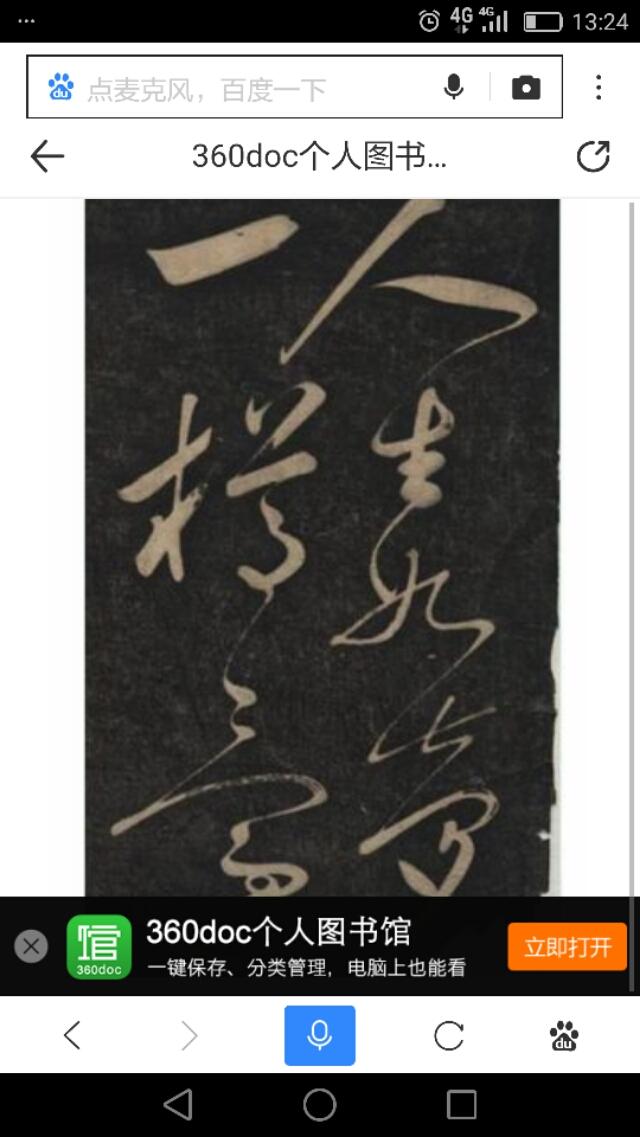 4G 4G 13:24
点麦克风，百度一下
360doc个人图书...
人生如夢
一樽還
馆 360doc
360doc个人图书馆
一键保存、分类管理，电脑上也能看
立即打开
du